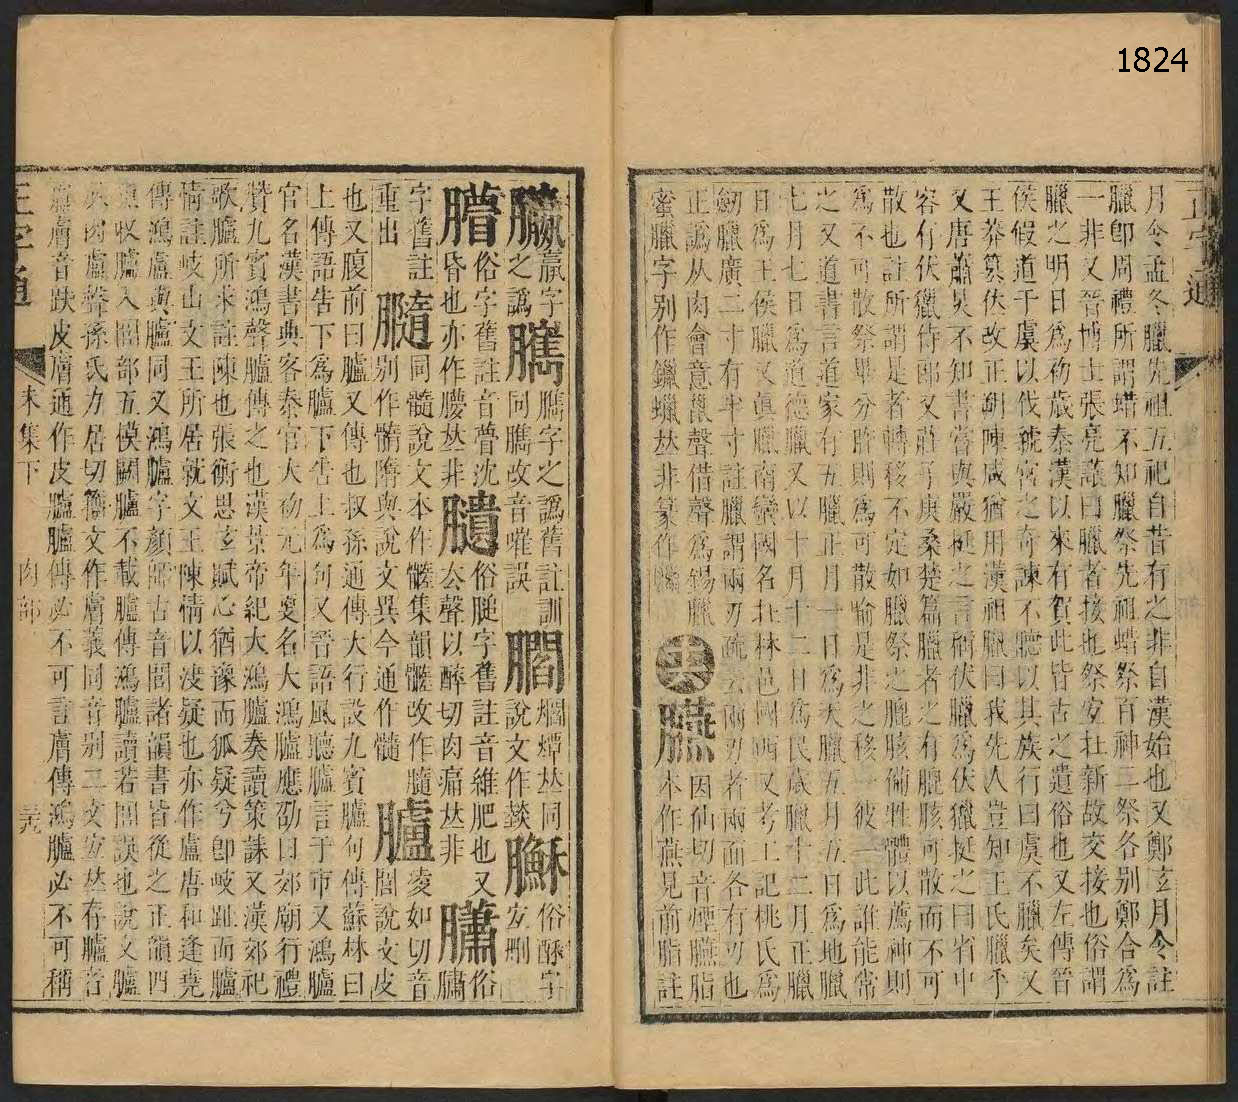 1824
正字通
月令孟冬臘先祖五祀自昔有之非自漢始也又鄭玄月令註
臘卽周禮所謂蜡不知臘祭先祖蜡祭百神二祭各别鄭合爲
一非又晉博士張亮議曰臘者接也祭宐在新故交接也俗謂
臘之明日爲初歲秦漢以來有賀此皆古之遺俗也又左傳晉
侯假道于虞以伐虢宮之奇諫不聽以其族行曰虞不臘矣又
王莽篡位改正朔陳咸猶用漢祖臘曰我先人豈知王氏臘乎
又唐蕭炅不知書嘗與嚴挺之言稱伏臘爲伏獵挺之曰省中
容有伏獵侍郎又莊子庚桑楚篇臘者之有膍胲可散而不可
散也註所謂是者轉移不定如臘祭之膍胲備牲體以薦神則
爲不可散祭畢分胙則爲可散喻是非之移一彼一此誰能常
之又道書言道家有五臘正月一日爲天臘五月五日爲地臘
七月七日爲道德臘又以十月十二日爲民歲臘十二月正臘
日爲王侯臘又眞臘南蠻國名在林邑國西又考工記桃氏爲
劒臘廣二寸有半寸註臘謂兩刃疏云兩刃者兩面各有刃也
正譌从肉會意巤聲借聲爲錫臘
蜜臘字别作鑞蠟𠀤非篆作臘 十六 臙 因仙切音煙臙脂
本作燕見前脂註
臝 羸字之譌 臇 臇字之譌舊註訓同臇改音嗺誤 爓 爓燂𠀤同說文作燅 䤓 俗酥字宐刪
𦢜 俗字舊註音瞢沈昏也亦作朦𠀤非 䐴 俗腿字舊註音維肥也又厺聲以醉切肉痛𠀤非 臗 俗臗
字舊註重出 膸 同髓說文本作髓集韻髓改作膸别作髄隋與說文異今通作髓 臚 凌如切音閭說文皮
也又腹前曰臚又傳也叔孫通傳大行設九賓臚句傳蘇林曰
上傳語告下爲臚下告上爲句又晉語風聽臚言于市又鴻臚
官名漢書典客秦官太初元年更名大鴻臚應劭曰郊廟行禮
贊九賓鴻聲臚傳之也漢景帝紀大鴻臚奏讀策誄又漢郊祀
歌臚所求註陳也張衡思玄賦心猶豫而狐疑兮卽岐趾而臚
情註岐山文王所居就文王陳情以決疑也亦作廬唐和逢堯
傳鴻廬與臚同又鴻臚字顏師古音閭諸韻書皆從之正韻四
魚收臚入閭部五模闕臚不載臚傳鴻臚讀若閭誤也說文臚
从肉盧聲孫氏力居切籀文作膚義同音别二文宐𠀤存臚音
盧膚音趺皮膚通作皮臚臚傳必不可言膚傳鴻臚必不可稱
正字通
未集下
肉部